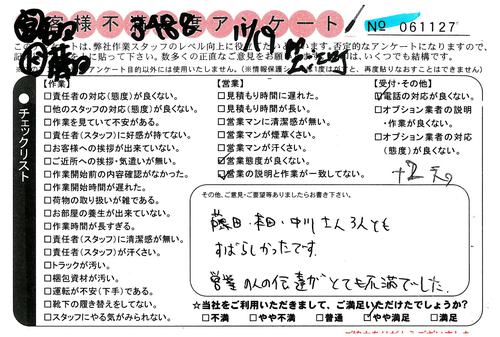 客様不満度アンケート
No 061127
このアンケートは、弊社作業スタッフのレベル向上に役立
否定的なアンケートになりますので、
数多くの正直なご意見をお願い
いくつでも結構です。
目的以外には使用いたしません。(※情報保護シ
再度貼りなおすことはできません)
チェックリスト
【作業】
□責任者の対応(態度)が良くない。
□他のスタッフの対応(態度)が良くない。
□作業を見ていて不安がある。
□責任者(スタッフ)に好感が持てない。
□お客様への挨拶が出来ていない。
□ご近所への挨拶・気遣いが無い。
□作業開始前の内容確認がなかった。
□作業開始時間が遅れた。
□荷物の取り扱いが雑である。
□お部屋の養生が出来ていない。
□作業時間が長すぎる。
□責任者(スタッフ)に清潔感が無い。
□責任者(スタッフ)が汗くさい。
□トラックが汚い。
□梱包資材が汚い。
□運転が不安(下手)である。
□靴下の履き替えをしてない。
□スタッフにやる気がみられない。
【営業】
□見積もり時間に遅れた。
□見積もり時間が長い。
□営業マンに清潔感が無い。
□営業マンが煙草くさい。
□営業マンが汗くさい。
☑営業態度が良くない。
☑営業の説明と作業が一致してない。
【受付・その他】
☑電話の対応が良くない。
□オプション業者の説明
・作業が良くない。
□オプション業者の対応
(態度)が良くない。
その他、ご意見・ご要望等ありましたらお書き下さい。
藤田・本田・中川さん3人とも
すばらしかったです。
営業の人の伝達がとても不満でした。
☆当社をご利用いただきまして、ご満足いただけたでしょうか?
□不満 □やや不満 □普通 □やや満足 □満足